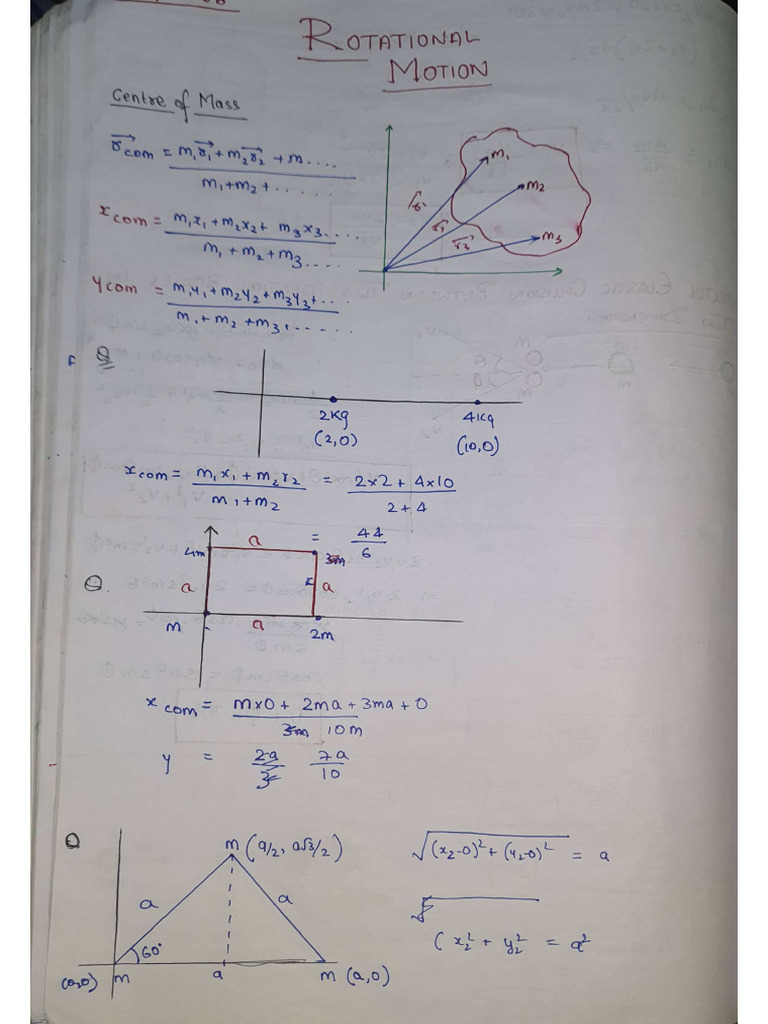 ROTATIONAL
MOTION
Centre of Mass
r⃗com = m₁r⃗₁ + m₂r⃗₂ + m....
m₁+m₂+ ......
xcom = m₁x₁ + m₂x₂ + m₃x₃....
m₁ + m₂ + m₃....
ycom = m₁y₁ + m₂y₂ + m₃y₃ + ..
m₁ + m₂ + m₃ + .....
m₁
m₂
m₃
r⃗₁
r⃗₂
r⃗₃
Q
2Kg
4Kg
(2,0)
(10,0)
xcom = m₁x₁ + m₂x₂ = 2×2 + 4×10
m₁+m₂
2+4
= 44
6
4m
a
3m
Q.
a
a
m
a
2m
xcom = m×0 + 2ma + 3ma + 0
10m
y = 7a
10
Q
m (a/2, a√3/2)
√(x₂-0)² + (y₂-0)² = a
a
a
(x₂² + y₂² = a²
60°
(0,0)
m
a
m (a,0)